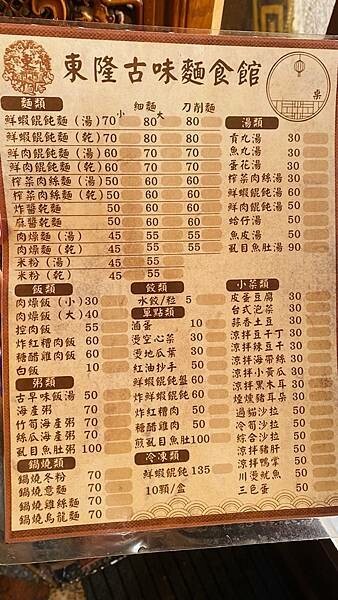 東隆古味麵食館
桌
麵類
細麵 刀削麵
小 大
鮮蝦餛飩麵(湯) 70 80 80
鮮蝦餛飩麵(乾) 70 80 80
鮮肉餛飩麵(湯) 60 70 70
鮮肉餛飩麵(乾) 60 70 70
榨菜肉絲麵(湯) 50 60 60
榨菜肉絲麵(乾) 50 60 60
炸醬乾麵 50 60 60
麻醬乾麵 50 60 60
肉燥麵(湯) 45 55 55
肉燥麵(乾) 45 55 55
米粉(湯) 45 55
米粉(乾) 45 55
飯類
肉燥飯(小) 30
肉燥飯(大) 40
控肉飯 55
炸紅糟肉飯 60
糖醋雞肉飯 60
白飯 10
粥類
古早味飯湯 50
海產粥 70
竹筍海產粥 70
絲瓜海產粥 70
虱目魚肚粥 100
鍋燒類
鍋燒冬粉 70
鍋燒意麵 70
鍋燒雞絲麵 70
鍋燒烏龍麵 70
餃類
水餃/粒 5
單點類
滷蛋 10
燙空心菜 30
燙地瓜葉 30
紅油抄手 50
鮮蝦餛飩盤 60
炸鮮蝦餛飩 60
炸紅糟肉 50
糖醋雞肉 50
煎虱目魚肚 100
冷凍類
鮮蝦餛飩 135
10顆/盒
湯類
貢丸湯 30
魚丸湯 30
蛋花湯 30
榨菜肉絲湯 30
鮮蝦餛飩湯 60
鮮肉餛飩湯 50
蛤仔湯 50
魚皮湯 50
虱目魚肚湯 90
小菜類
皮蛋豆腐 30
台式泡菜 30
蒜香土豆 30
涼拌豆干丁 30
涼拌辣豆干 30
涼拌海帶絲 30
涼拌小黃瓜 30
涼拌黑木耳 30
煙燻豬耳朵 30
過貓沙拉 50
冷筍沙拉 50
綜合沙拉 50
涼拌豬肝 50
涼拌鴨掌 50
川燙魷魚 50
三色蛋 50